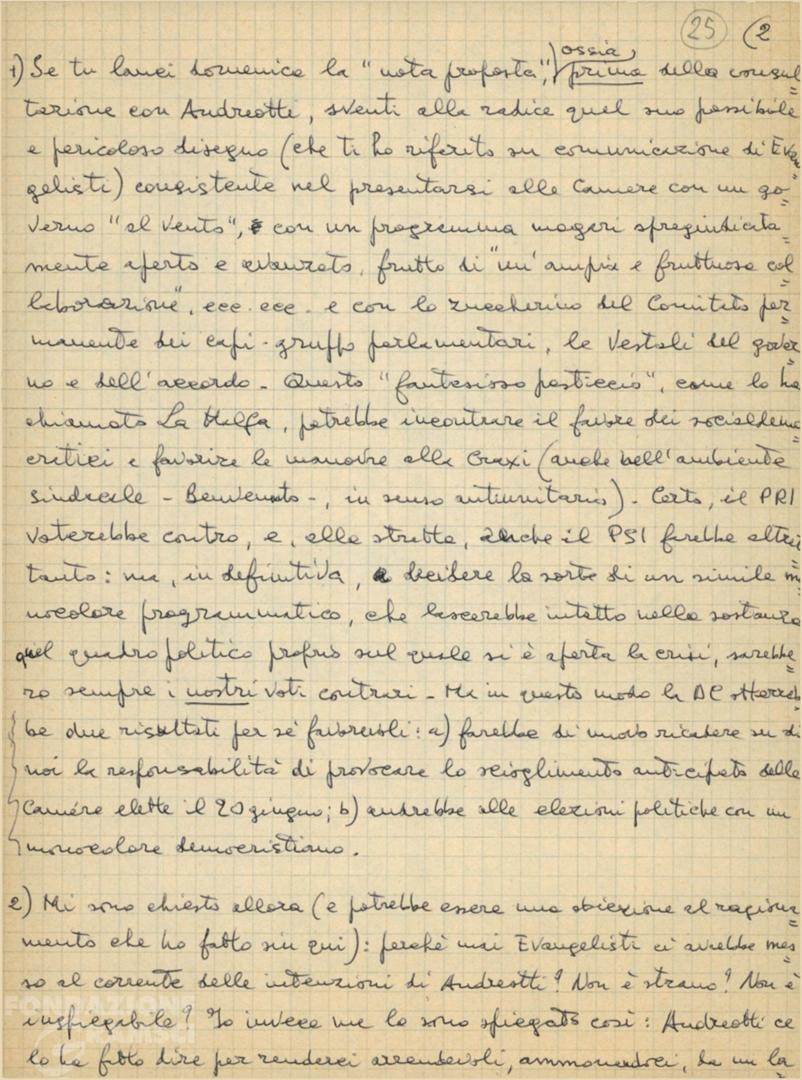 25 (2
1) Se tu lanci domenica la "nota proposta", ossia prima della consul=
tazione con Andreotti, sventi alla radice quel suo possibile
e pericoloso disegno (che ti ho riferito su comunicazione di Eva=
gelisti) consistente nel presentarsi alle Camere con un go=
verno "al vento", con un programma magari spregiudicata=
mente aperto e avanzato, frutto di "un'ampia e fruttuosa col=
laborazione", ecc. ecc. e con lo zuccherino del Comitato per=
manente dei capi-gruppo parlamentari, le Vestali del gover=
no e dell'accordo - Questo "fantasioso pasticcio", come lo ha
chiamato La Malfa, potrebbe incontrare il favore dei socialdemo=
cratici e favorire le manovre alla Craxi (anche nell'ambiente
sindacale - Benvenuto -, in senso antiunitario). Certo, il PRI
voterebbe contro, e, alla stretta, anche il PSI farebbe altret=
tanto: ma, in definitiva, a decidere la sorte di un simile m=
nocolore programmatico, che lascerebbe intatto nella sostanza
quel quadro politico proprio sul quale si è aperta la crisi, sarebbe=
ro sempre i nostri voti contrari - Ma in questo modo la DC otterreb=
be due risultati per sé favorevoli: a) farebbe di nuovo ricadere su di
noi la responsabilità di provocare lo scioglimento anticipato delle
Camere elette il 20 giugno; b) andrebbe alle elezioni politiche con un
monocolore democristiano.
2) Mi sono chiesto allora (e potrebbe essere una obiezione al ragiona=
mento che ho fatto sin qui): perché mai Evangelisti ci avrebbe mes=
so al corrente delle intenzioni di Andreotti? Non è strano? Non è
inspiegabile? Io invece me lo sono spiegato così: Andreotti ce
lo ha fatto dire per renderci arrendevoli, ammonendoci, da un la=
FONDAZIONE